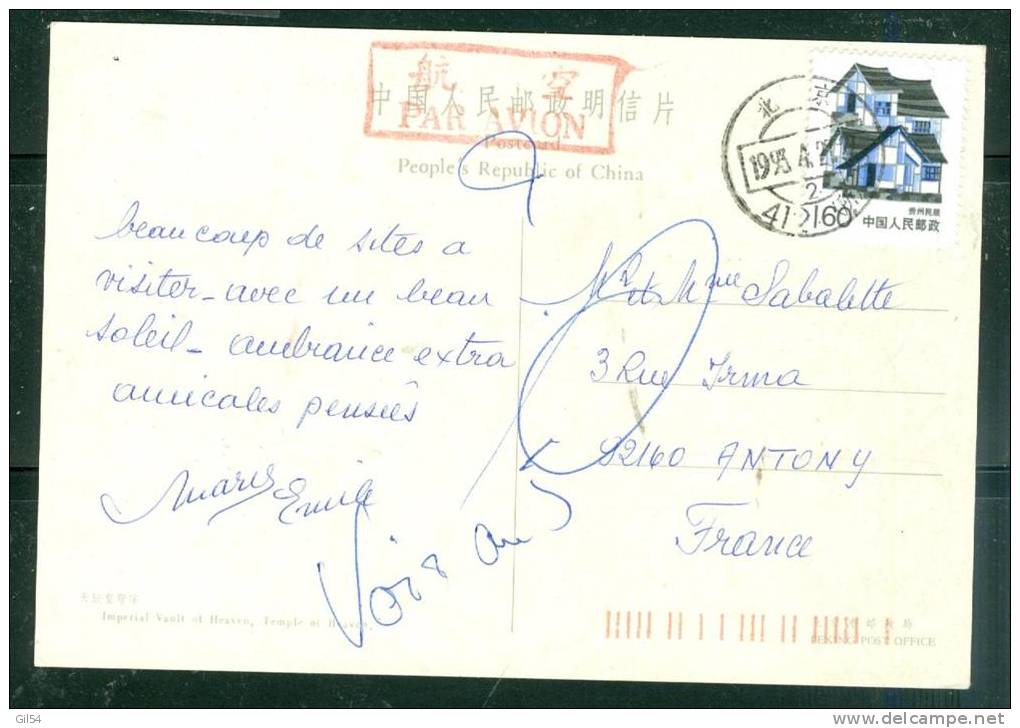 航 空
PAR AVION
中国人民邮政明信片
Postcard
People's Republic of China
北 京
1993.4.2
2
41 2160
贵州民居
中国人民邮政
beaucoup de sites a
visiter - avec un beau
soleil - ambiance extra
amicales pensées
Marie Emile
Mr et Mme Sabalette
3 Rue Irma
92160 ANTONY
France
Imperial Vault of Heaven, Temple of Heaven.
邮政局
PEKING POST OFFICE
Gil54
www.delcampe.net